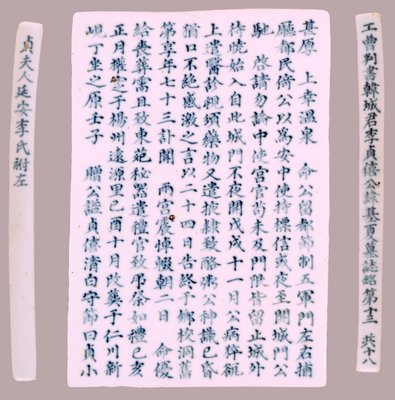 工曹判書韓城君李貞僖公諱基夏墓誌銘第十三 共十八
甚厚 上幸溫泉 命公留都節制五軍門左右捕
廳都民倚公以爲安中使持標信或夜至開城門公
馳 啓請勿論中使宮官苟未及門限皆留止城外
待曉始入自此城門不夜開戊戌十一月公病猝
上遣醫診視頒藥物又遣掖隸致酪粥公神識已昏
猶口不絶感激之言以二十四日告終于鄕校洞舊
第享年七十三訃聞 兩宮震悼輟朝二日 命優
給喪葬需且致東苑秘器遣禮官致吊祭如禮己亥
正月權厝之于楊州遠源里己酉十月改葬于仁川新
峴丁坐之原壬子 贈公諡貞僖清白守節曰貞小
貞夫人延安李氏祔左